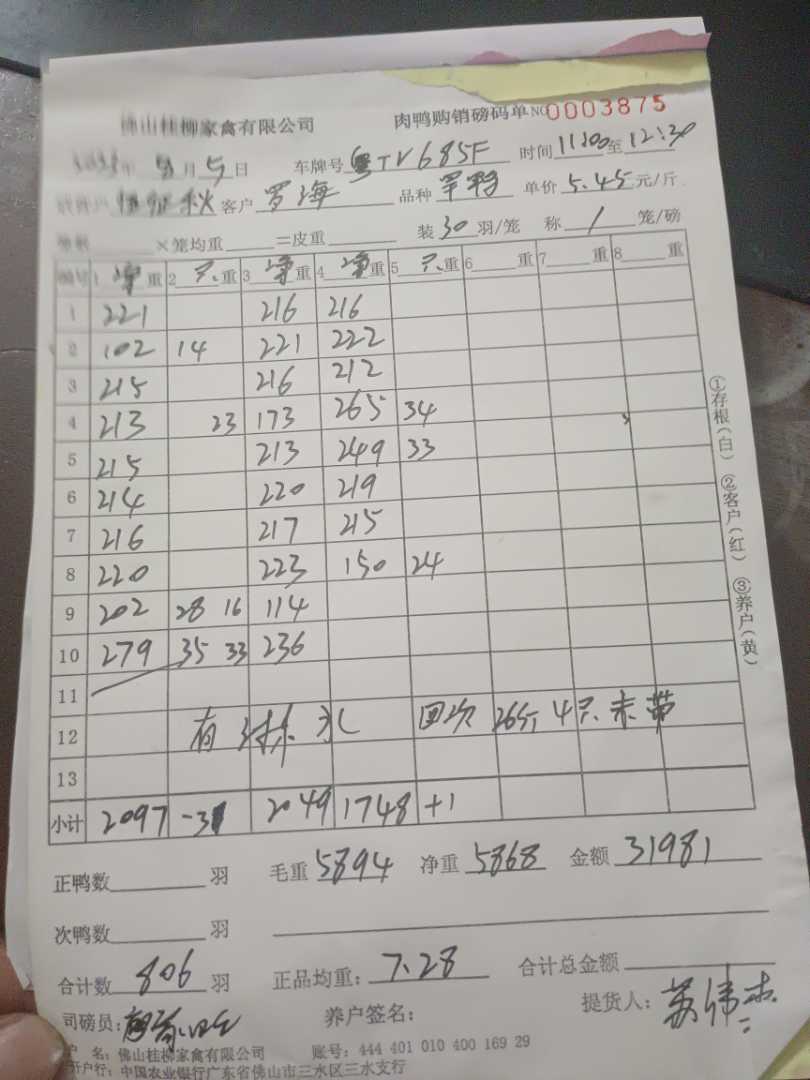 佛山桂柳家禽有限公司 肉鸭购销磅码单 NO 0003875
年 月 5 日 车牌号 粤TV685F 时间 11:00 至 12:30
秋 客户 罗海 品种 单价 5.45 元/斤
×笼均重 =皮重 装 30 羽/笼 称 1 笼/磅
编号 1 净 重 2 只 重 3 净 重 4 净 重 5 只 重 6 重 7 重 8 重
1 221 216 216
2 102 14 221 222
3 215 216 212
4 213 23 173 265 34
5 215 213 249 33
6 214 220 219
7 216 217 215
8 220 223 150 24
9 202 28 16 114
10 279 35 33 236
11
12 有淋水 回次 26斤 4只 未带
13
小计 2097 2049 1748 +1
正鸭数 羽 毛重 5894 净重 5868 金额 31981
次鸭数 羽
合计数 806 羽 正品均重: 7.28 合计总金额
司磅员: 养户签名: 提货人: 苏伟杰
户 名: 佛山桂柳家禽有限公司 账号: 444 401 010 400 169 29
开户行: 中国农业银行广东省佛山市三水区三水支行
①存根(白) ②客户(红) ③养户(黄)